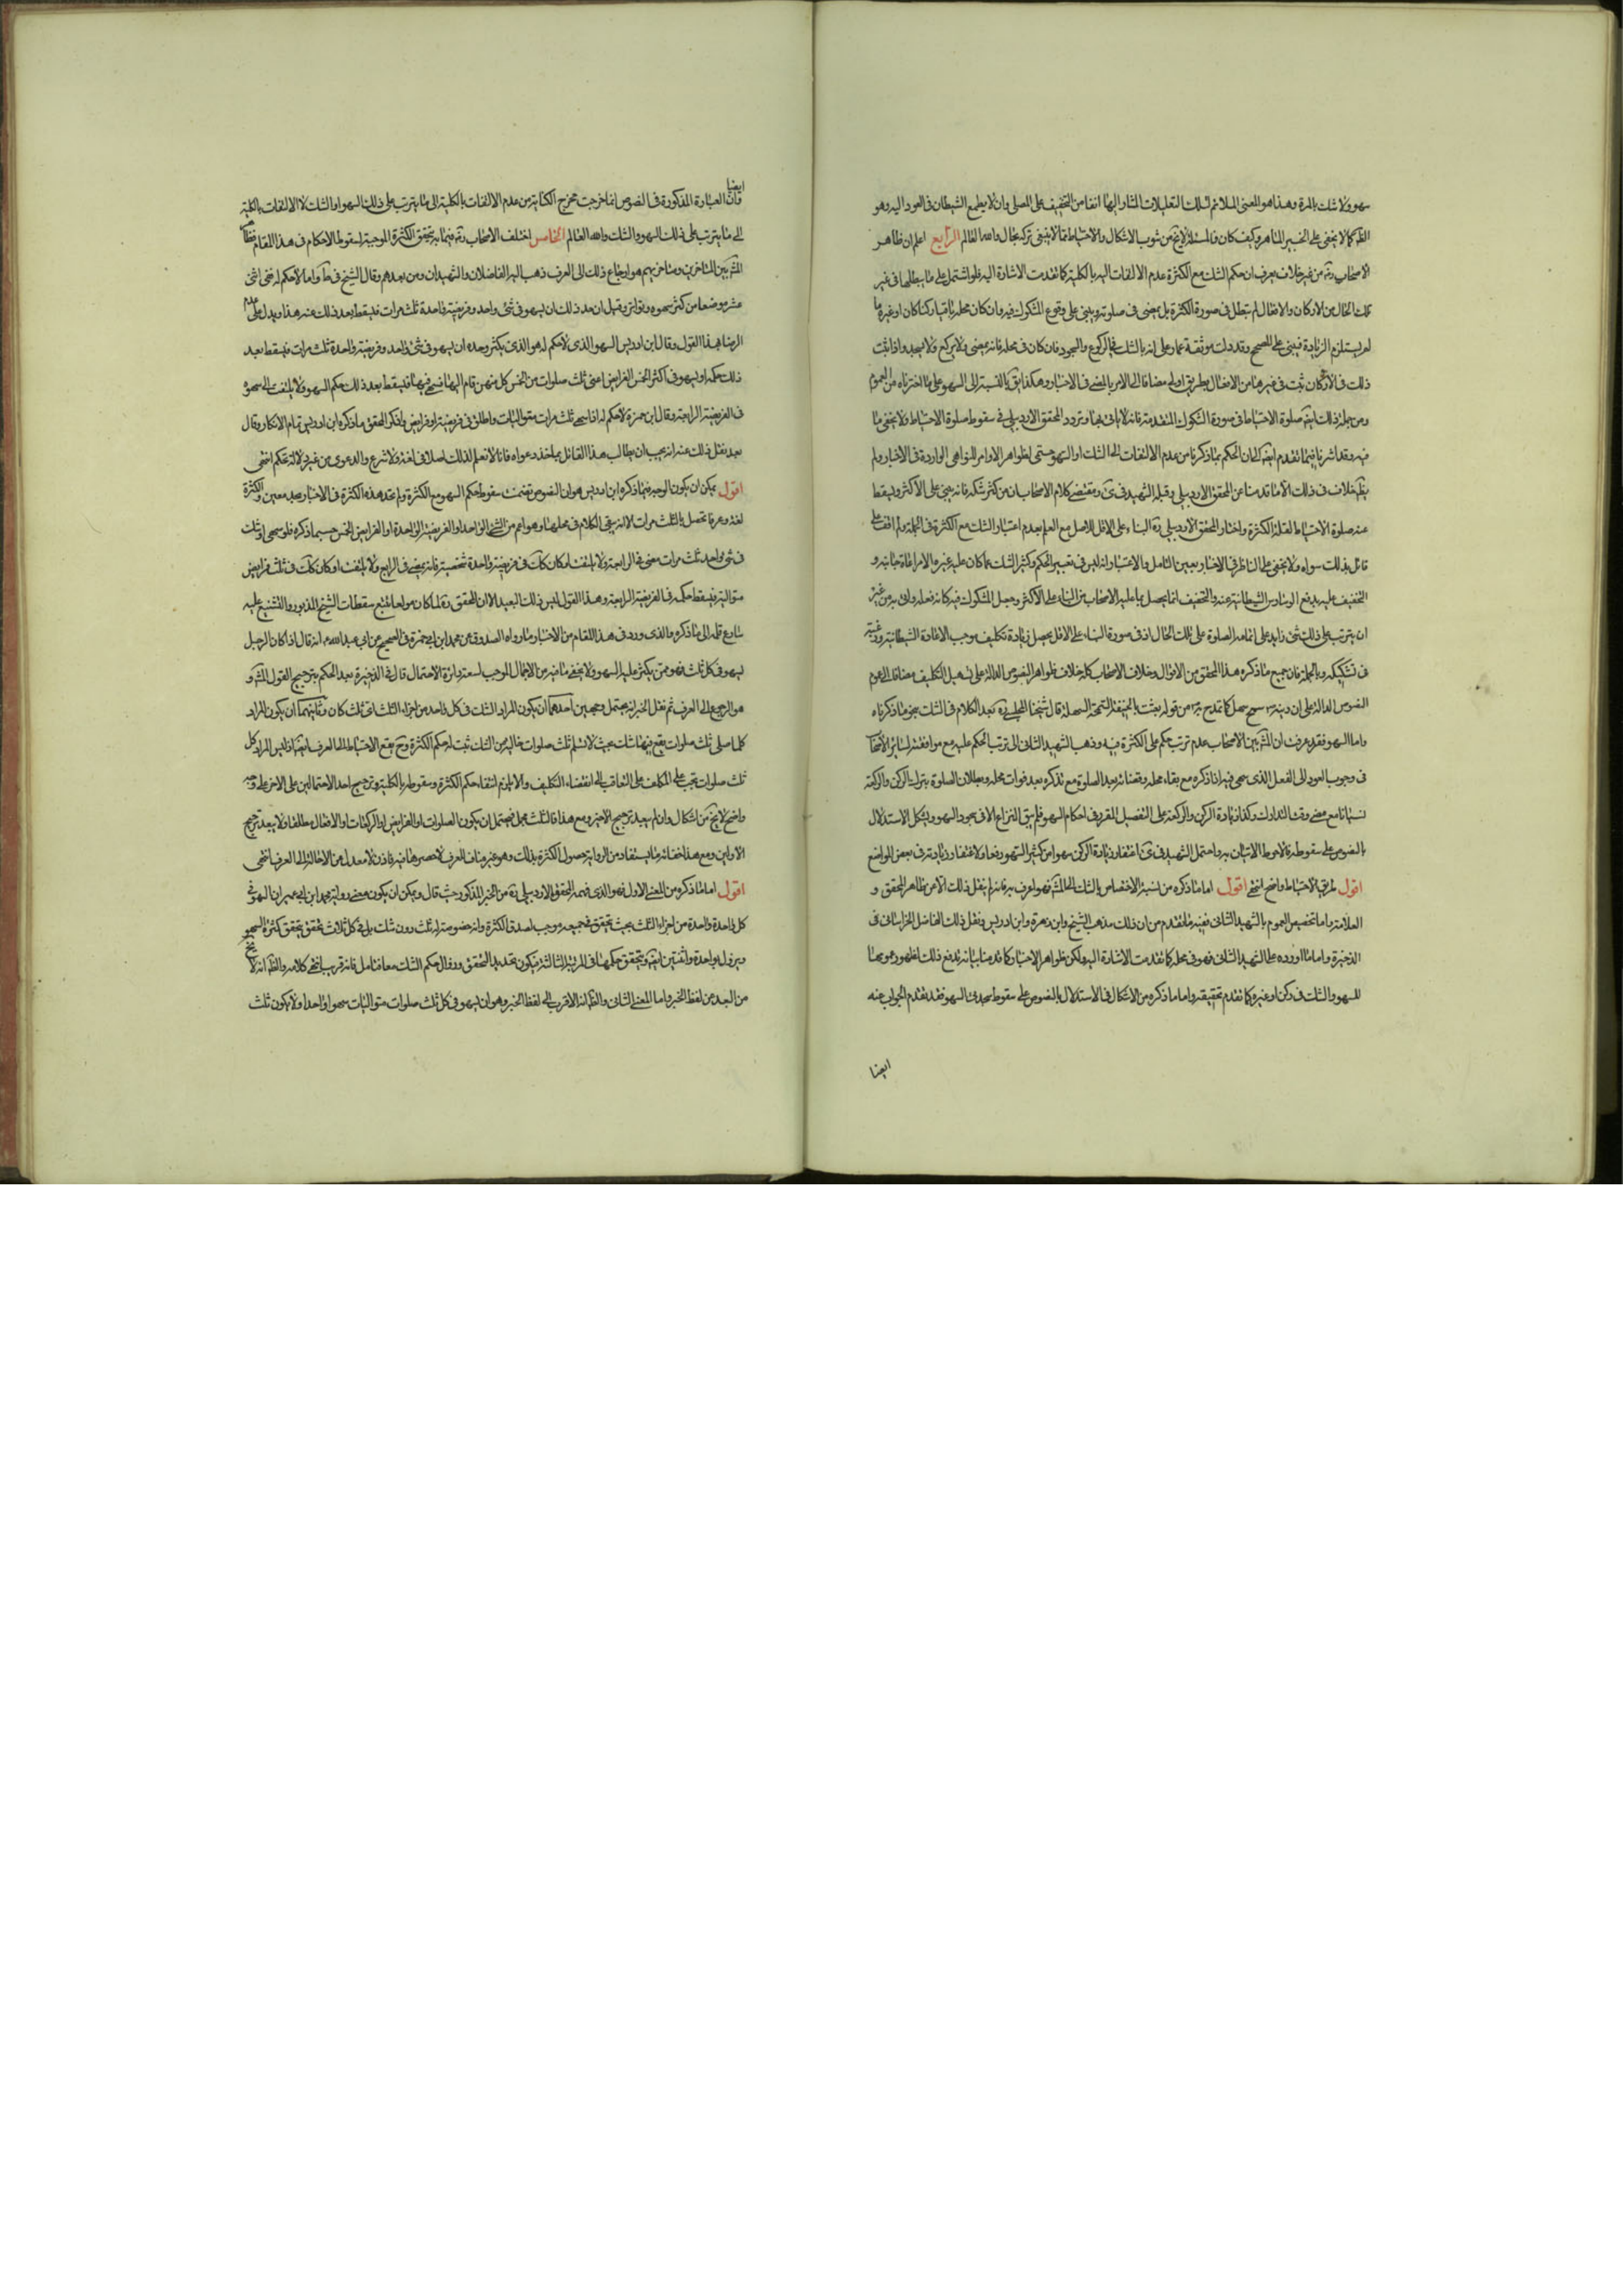 سهو ولا شك بالمرة وهذا هو المعنى الملائم لتلك التعليلات المشار اليها انفا من التخفيف على المصلى وان لا يطمع الشيطان فى العود اليه وهو
الظ كما لا يخفى على الخبير الماهر وكيف كان فالمسئلة لا يخ من شوب الاشكال والاحتياط مما لا ينبغى تركه بحال والله العالم الرابع اعلم ان ظاهر
الاصحاب رة من غير خلاف يعرف ان حكم الشك مع الكثرة عدم الالتفات اليه بالكلية كما تقدمت الاشارة اليه فلو اشتمل على ما يبطلها فى غير
تلك الحال من الاركان والافعال لم تبطل فى صورة الكثرة بل يمضى فى صلوته ويبنى على وقوع المشكوك فيه وان كان محله باقيا ركنا كان او غيره ما
لم يستلزم الزيادة فيبنى على المصحح وقد دلت موثقة عمار على انه بالشك فى الركوع والسجود فان كان فى محله فانه يمضى ولا يركع ولا يسجد واذا ثبت
ذلك فى الاركان ثبت فى غيرها من الافعال بطريق اولى مضافا الى الامر بالمضى فى الاخبار وهكذا يق بالنسبة الى السهو على ما اخترناه من العموم
ومن جملة ذلك ايض صلوة الاحتياط فى صورة الشكوك المتقدمة فانه لا يات بها وتردد المحقق الاردبيلى فى سقوط صلوة الاحتياط ولا يخفى ما
فيه وقد اشرنا فيما تقدم ايض الى ان الحكم بما ذكرنا من عدم الالتفات الى الشك او السهو حتمى لظواهر الاوامر والنواهى الواردة فى الاخبار ولم
ينقل خلاف فى ذلك الا ما قدمنا عن المحقق الاردبيلى وقبله الشهيد فى كرى ومقتضى كلام الاصحاب ان من كثر شكه فانه يبنى على الاكثر ويسقط
عنه صلوة الاحتياط لعلة الكثرة واختار المحقق الاردبيلى رة البناء على الاقل للاصل مع العلم بعدم اعتبار الشك مع الكثرة فى الجملة ولم اقف على
قائل بذلك سواه ولا يخفى على الناظر فى الاخبار بعين التامل والاعتبار انه ليس فى تغيير الحكم وكثير الشك عما كان عليه غيره الا مراعاة جانبه و
التخفيف عليه بدفع الوساوس الشيطانية عنه والتخفيف انما يحصل بما عليه الاصحاب من البناء على الاكثر وجعل المشكوك فيه كانه فعله واتى به من غير
ان يترتب على ذلك شئ زايد على اتمامه الصلوة على تلك الحال اذ فى صورة البناء على الاقل يحصل زيادة تكليف يوجب الاعادة الشيطانية ورغبته
فى تشكيكه وبالجملة فان جميع ما ذكره هذا المحقق من الاقوال وخلاف الاصحاب كله خلاف ظواهر النصوص الدالة على تسهيل التكليف مضافا الى عموم
النصوص الدالة على ان دينه ص سمح سهل كما تمدح به ص من قوله بعثت بالحنيفة السمحة السهلة قال شيخنا المجلسى رة بعد الكلام فى الشك بنحو ما ذكرناه
واما السهو فقد عرفت ان المش بين الاصحاب عدم ترتب حكم على الكثرة فيه وذهب الشهيد الثانى الى ترتب الحكم عليه مع موافقته لسائر الاصحاب
فى وجوب العود الى الفعل الذى سهى فيه اذا ذكره مع بقاء محله وقضائه بعد الصلوة مع تذكره بعد فوات محله وبطلان الصلوة بترك الركن والركعة
نسيانا مع مضى وقت التدارك وكذا زيادة الركن والركعة على التفصيل المقرر فى احكام السهو فلم يبق النزاع الا فى سجود السهو ويشكل الاستدلال
بالنصوص على سقوطه فالاحوط الاتيان به واحتمل الشهيد فى كرى اغتفار زيادة الركن سهوا من كثير السهو دفعا ولاغتفار زيادته فى بعض المواضع
اقول طريق الاحتياط واضح انتهى اقول اما ما ذكره من نسبة الاختصاص بالشك الى المش فهو اعرف به فانه لم ينقل ذلك الا عن ظاهر المحقق و
العلامة واما تخصيص العموم بالشهيد الثانى ففيه ما تقدم من ان ذلك مذهب الشيخ وابن زهرة وابن ادريس ونقل ذلك الفاضل الخراسانى فى
الذخيرة واما ما اورده على الشهيد الثانى فهو فى محله كما تقدمت الاشارة اليه ولكن ظواهر الاخبار كما قدمنا بيانه يدفع ذلك لظهور عمومها
للسهو والشك فى ركن او غيره كما تقدم تحقيقه واما ما ذكره من الاشكال فى الاستدلال بالنصوص على سقوط سجدتى السهو فقد تقدم الجواب عنه
ايضا
ايضا
وان العبارة المذكورة فى النصوص انما خرجت مخرج الكناية من عدم الالتفات بالكلية الى ما يترتب على ذلك السهو او الشك لا الالتفات بالكلية
الى ما يترتب على ذلك السهو والشك والله العالم الخامس اختلف الاصحاب رة فيما به يتحقق الكثرة الموجبة لسقوط الاحكام فى هذا المقام فظاهر
المش بين المتاخرين ومتاخريهم هو ارجاع ذلك الى العرف ذهب اليه الفاضلان والشهيدان ومن بعدهم وقال الشيخ فى ط واما لا حكم له فهى اثنى
عشر موضعا من كثر سهوه وتواتر وقيل ان حد ذلك ان يسهو فى شئ واحد وفريضة واحدة ثلث مرات فيسقط بعد ذلك عنه هذا ويدل على عدم
الرضا بهذا القول وقال ابن ادريس السهو الذى لا حكم له هو الذى يكثر وحده ان يسهو فى شئ واحد وفريضة واحدة ثلث مرات فيسقط بعد
ذلك حكمه او يسهو فى اكثر الخمس الفرايض اعنى ثلث صلوات من الخمس كل منهن قام اليها فسهى فيها فيسقط بعد ذلك حكم السهو ولا يلتفت الى سهوه
فى الفريضة الرابعة وقال ابن حمزة لا حكم له اذا سهى ثلث مرات متواليات واطلق فى فريضة او فرايض وانكر المحقق ما ذكره ابن ادريس تمام الانكار وقال
بعد نقل ذلك عنه انه يجب ان يطالب هذا القائل بماخذ دعواه فانا لا نعلم لذلك اصلا فى لغة ولا شرع والدعوى من غير دلالة تحكم انتهى
اقول يمكن ان يكون الوجه فيما ذكره ابن ادريس هو ان النصوص تضمنت سقوط حكم السهو مع الكثرة ولم تحد هذه الكثرة فى الاخبار بحد معين والكثرة
لغة وعرفا تحصل بالثلث مرات الا انه يبقى الكلام فى محلها وهو اعم من الشئ الواحد او الفريضة الواحدة او الفرايض الخمس حسبما ذكره فلو سهى او شك
فى شئ واحد ثلث مرات مضى فى الرابعة ولا يلتفت او كان كك فى فريضة واحدة شخصية فانه يمضى فى الرابع ولا يلتفت او كان كك فى ثلث فرايض
متوالية فيسقط حكمه فى الفريضة الرابعة وهذا القول ليس ذلك البعيد الا ان المحقق رة لما كان مولعا بتتبع سقطات الشيخ المذبور والتشنيع عليه
سارع قلمه الى ما ذكره والذى ورد فى هذا المقام من الاخبار ما رواه الصدوق عن محمد ابن ابى حمزة فى الصحيح عن ابى عبد الله ع انه قال اذا كان الرجل
يسهو فى كل ثلث فهو ممن يكثر عليه السهو ولا يخفى ما فيه من الاجمال الموجب لسعة دائرة الاحتمال قال فى الذخيرة بعد الحكم بترجيح القول المش و
هو الرجوع الى العرف ثم نقل الخبر انه يحتمل وجهين احدهما ان يكون المراد الشك فى كل واحد من اجزاء الثلث اى ثلث كان وثانيهما ان يكون المراد
كلما صلى ثلث صلوات يقع فيها شك بحيث لا يسلم ثلث صلوات خالية من الشك ثبت له حكم الكثرة وح يقع الاحتياط الى العرف ايضا اذ ليس المراد كل
ثلث صلوات تجب على المكلف على التعاقب الى انقضاء التكليف والا يلزم انتفاء حكم الكثرة وسقوطه بالكلية وترجيح احد الاحتمالين على الاخر على وجه
واضح لا يخ من اشكال وان لم يبعد ترجيح الاخير ومع هذا فالثلث مجمل فيحتمل ان يكون الصلوات او الفرايض او الركعات او الافعال مطلقا ولا يبعد ترجيح
الاولين ومع هذا خفائه فما يستفاد من الرواية حصول الكثرة بذلك وهو غير مناف العرف لا حصرها فيه فاذن لا معدل عن الاحالة الى العرف انتهى
اقول اما ما ذكره من المعنى الاول فهو الذى فهمه المحقق الاردبيلى رة من الخبر المذكور حيث قال ويمكن ان يكون معنى رواية محمد ابن ابى عمير ان السهو فى
كل واحدة واحدة من اجزاء الثلث بحيث يتحقق فى جميعه موجب لصدق الكثرة وانه خصوصية له بثلث دون ثلث بل فى كل ثلاث تحقق يتحقق كثرة السهو
ويزول بواحدة واثنتين ايض ويتحقق حكمها فى المرتبة الثالثة فيكون تحديد التحقق وزوال حكم الشك معا فتامل فانه قريب انتهى كلامه والظ انه لا يخ
من البعد عن لفظ الخبر واما المعنى الثانى والظ انه الاقرب الى لفظ الخبر وهو ان يسهو فى كل ثلث صلوات متواليات سهوا واحدا ولا يكون ثلث